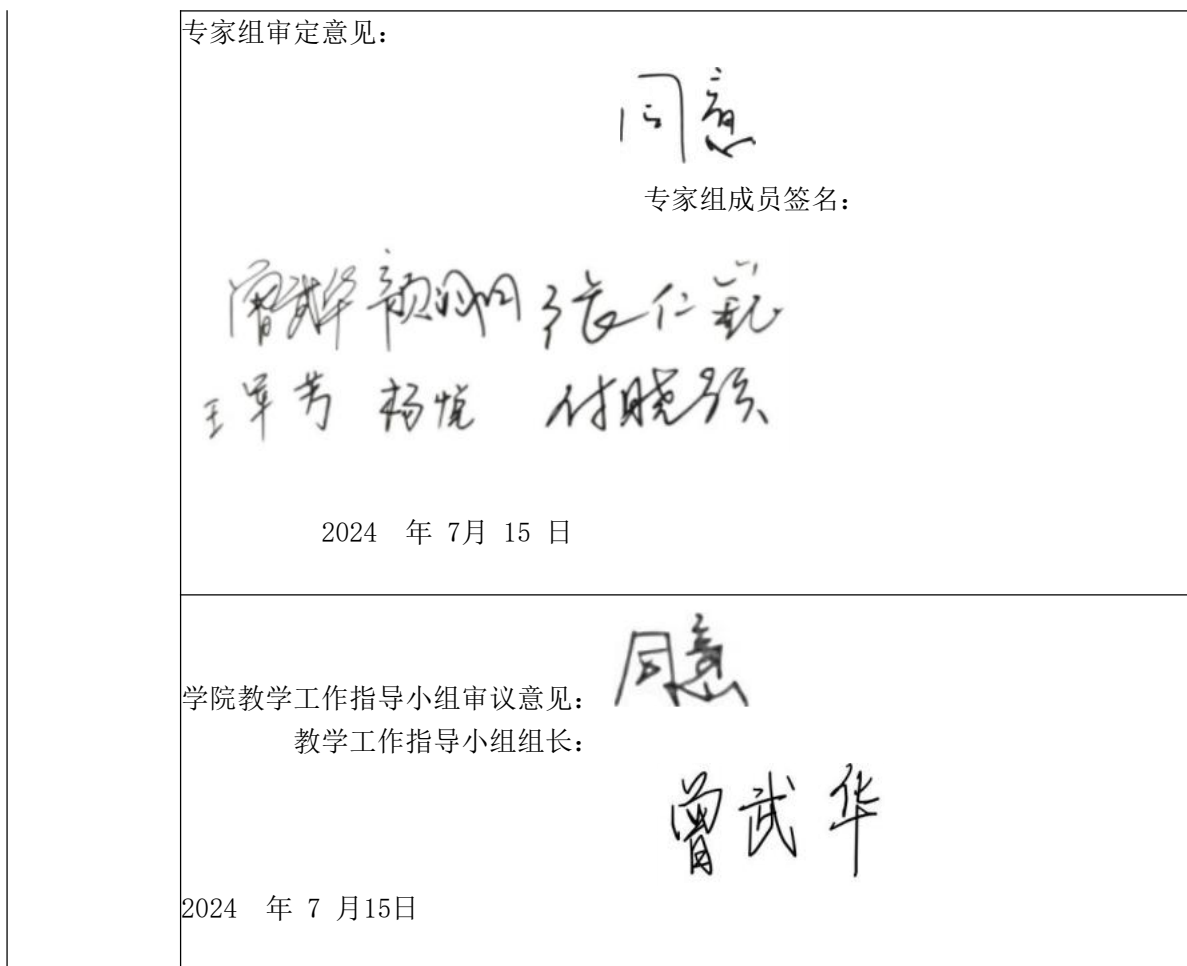 专家组审定意见：
同意
专家组成员签名：
曾武华 颜桂炀 张仁
王军芳 杨悦 付晓强
2024 年 7月 15 日
学院教学工作指导小组审议意见： 同意
教学工作指导小组组长：
曾武华
2024 年 7 月15日